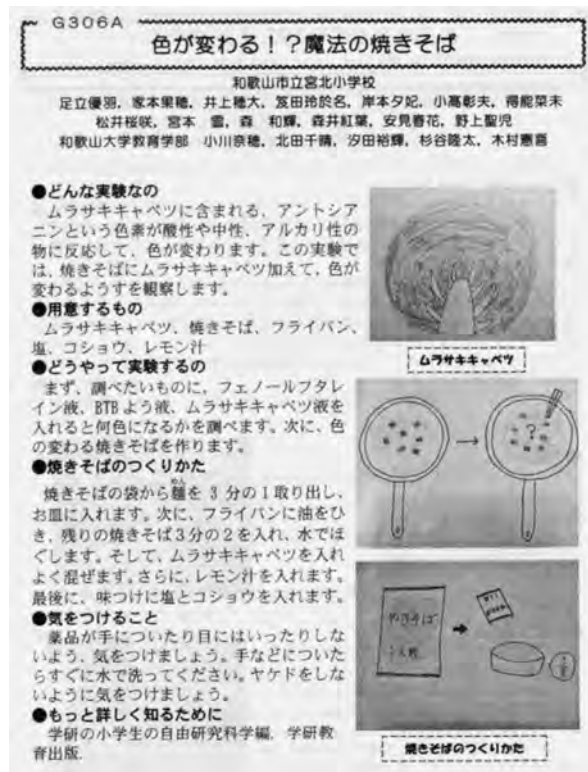 G306A
色が変わる！？魔法の焼きそば
和歌山市立宮北小学校
足立優羽，家本果穂，井上穂大，笈田玲於名，岸本夕妃，小髙彰夫，得能菜未
松井桜咲，宮本 雪，森 和輝，森井紅葉，安見春花，野上聖児
和歌山大学教育学部 小川奈穂，北田千晴，汐田裕輝，杉谷隆太，木村憲喜
●どんな実験なの
ムラサキキャベツに含まれる、アントシア
ニンという色素が酸性や中性、アルカリ性の
物に反応して、色が変わります。この実験で
は、焼きそばにムラサキキャベツ加えて、色が
変わるようすを観察します。
●用意するもの
ムラサキキャベツ、焼きそば、フライパン、
塩、コショウ、レモン汁
●どうやって実験するの
まず、調べたいものに、フェノールフタレ
イン液、BTBよう液、ムラサキキャベツ液を
入れると何色になるかを調べます。次に、色
の変わる焼きそばを作ります。
●焼きそばのつくりかた
焼きそばの袋から麺を 3 分の 1 取り出し、
お皿に入れます。次に、フライパンに油をひ
き、残りの焼きそば3分の2を入れ、水でほ
ぐします。そして、ムラサキキャベツを入れ
よく混ぜます。さらに、レモン汁を入れます。
最後に、味つけに塩とコショウを入れます。
●気をつけること
薬品が手についたり目にはいったりしな
いよう、気をつけましょう。手などについた
らすぐに水で洗ってください。ヤケドをしな
いように気をつけましょう。
●もっと詳しく知るために
学研の小学生の自由研究科学編，学研教
育出版．
ムラサキキャベツ
?
やきそば
焼きそばのつくりかた